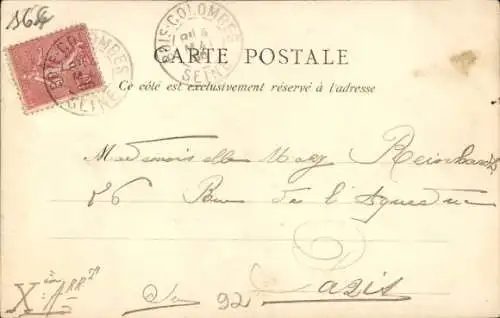 164
BOIS-COLOMBES
SEINE
BOIS-COLOMBES
SEINE
CARTE POSTALE
Ce côté est exclusivement réservé à l'adresse
Mademoiselle Mary
86 Rue de l'Aqueduc
Paris
X ième ARRt
92